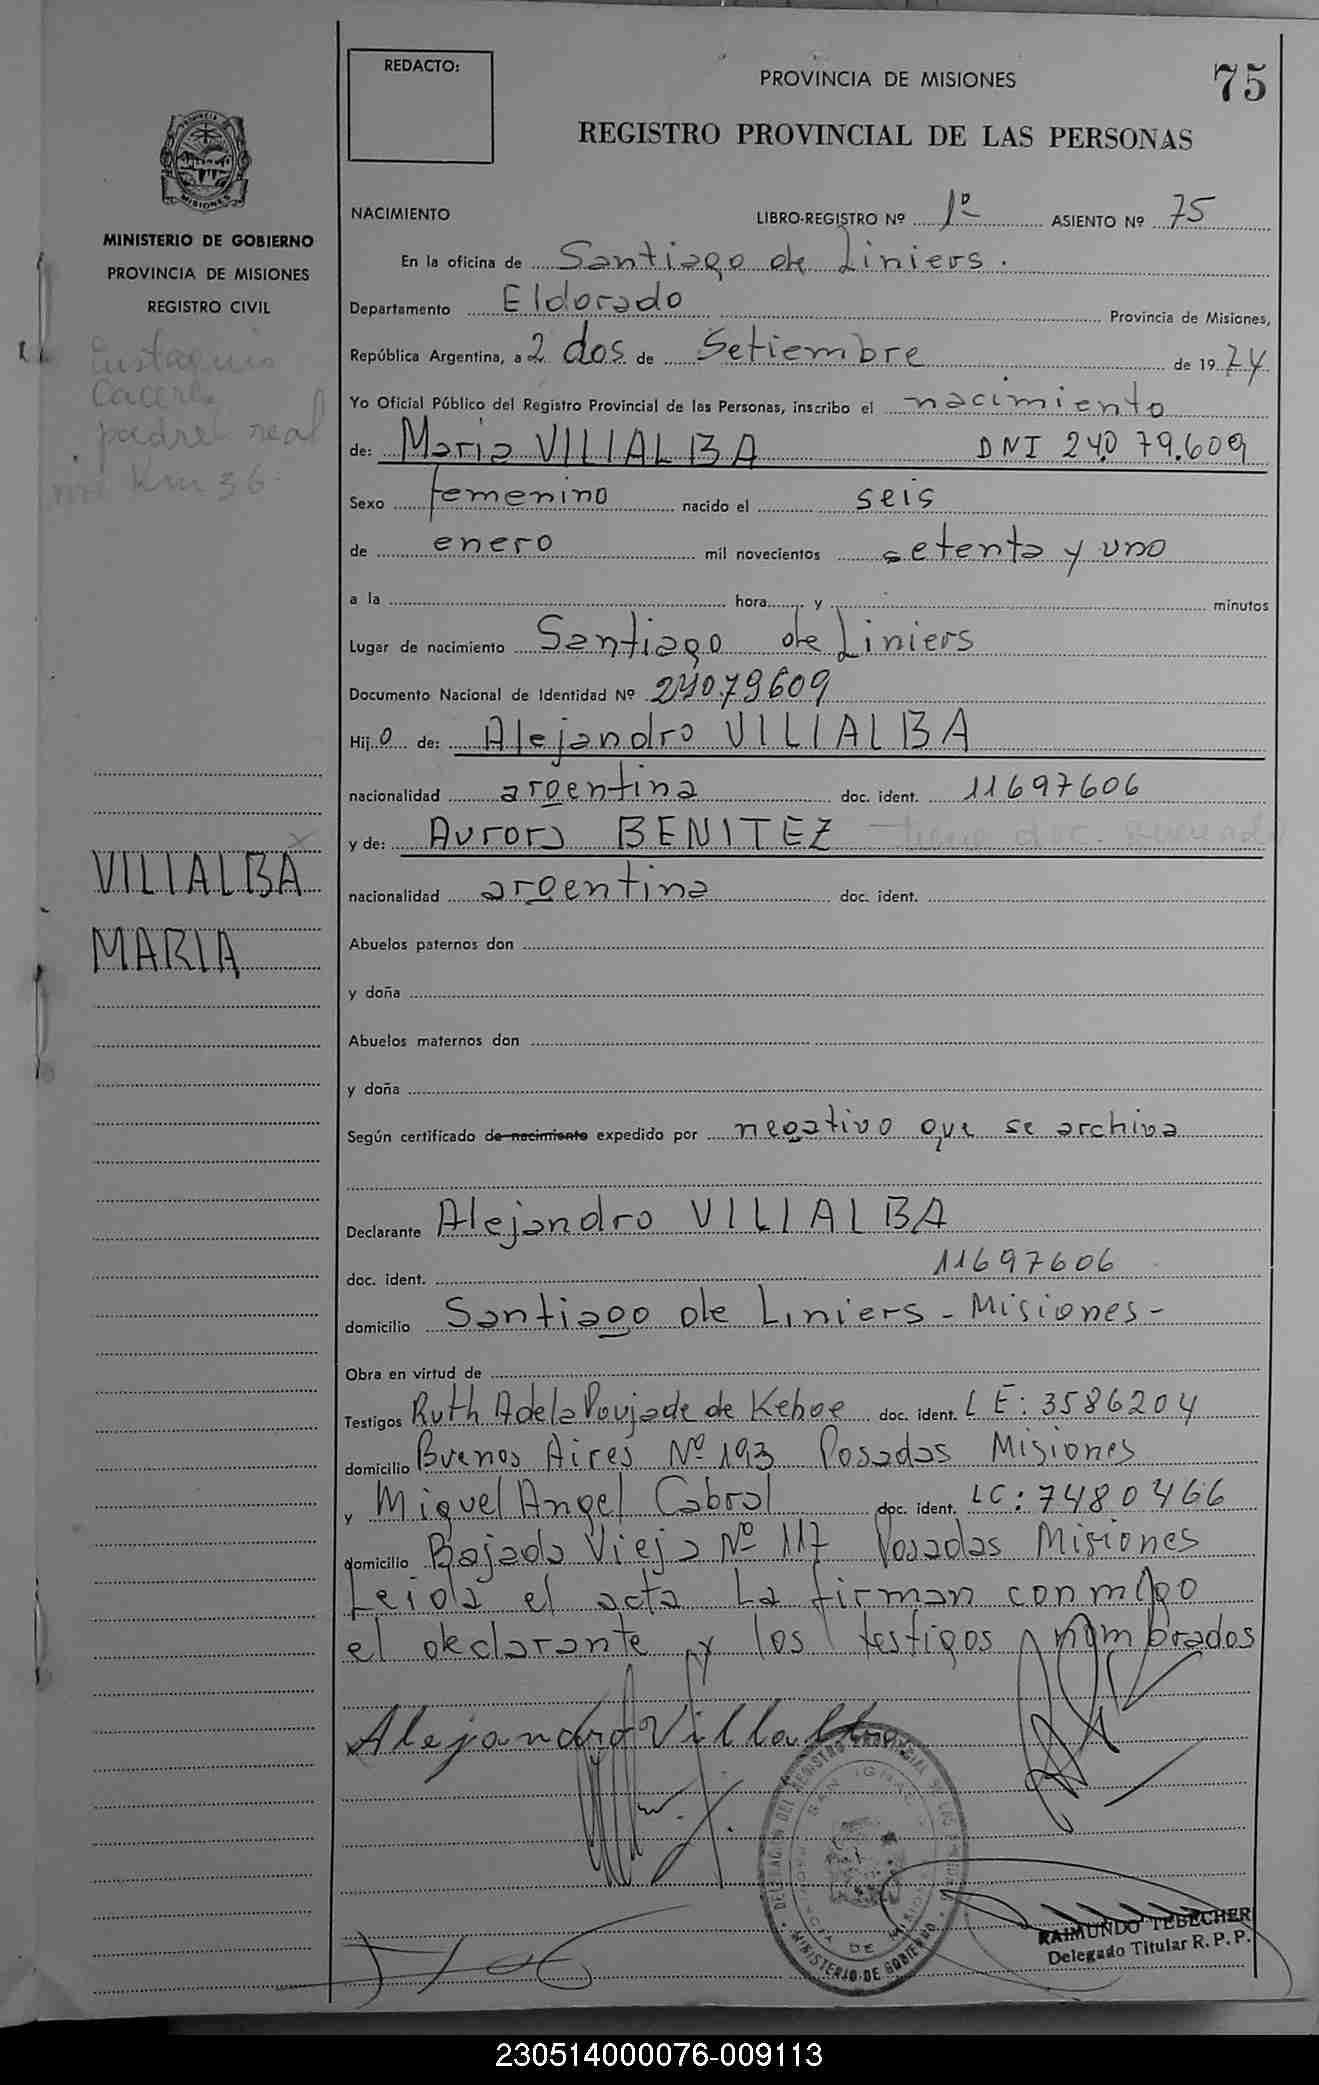 REDACTO:
PROVINCIA DE MISIONES
75
REGISTRO PROVINCIAL DE LAS PERSONAS
MISIONES
MINISTERIO DE GOBIERNO
PROVINCIA DE MISIONES
REGISTRO CIVIL
Eustaquio
Caceres
padre real
Km 36
VILLALBA
MARIA
NACIMIENTO LIBRO-REGISTRO Nº 1º ASIENTO Nº 75
En la oficina de Santiago de Liniers.
Departamento Eldorado Provincia de Misiones,
República Argentina, a 2 dos de Setiembre de 1974
Yo Oficial Público del Registro Provincial de las Personas, inscribo el nacimiento
de: Maria VILLALBA DNI 24.079.609
Sexo femenino nacido el seis
de enero mil novecientos setenta y uno
a la hora y minutos
Lugar de nacimiento Santiago de Liniers
Documento Nacional de Identidad Nº 24079609
Hijo de: Alejandro VILLALBA
nacionalidad argentina doc. ident. 11697606
y de: Aurora BENITEZ tiene doc.
nacionalidad argentina doc. ident.
Abuelos paternos don
y doña
Abuelos maternos don
y doña
Según certificado de nacimiento expedido por negativo que se archiva
Declarante Alejandro VILLALBA
doc. ident. 11697606
domicilio Santiago de Liniers - Misiones -
Obra en virtud de
Testigos Ruth Adela Poujade de Kehoe doc. ident. LE: 3586204
domicilio Buenos Aires Nº 193 Posadas Misiones
y Miguel Angel Cabral doc. ident. LC: 7480466
domicilio Bajada Vieja Nº 117 Posadas Misiones
Leida el acta la firman conmigo
el declarante y los testigos nombrados
Alejandro Villalba
DELEGACION DEL REGISTRO PROVINCIAL DE LAS PERSONAS
SAN IGNACIO
PROVINCIA DE MISIONES
MINISTERIO DE GOBIERNO
RAIMUNDO TEBECHER
Delegado Titular R. P. P.
230514000076-009113